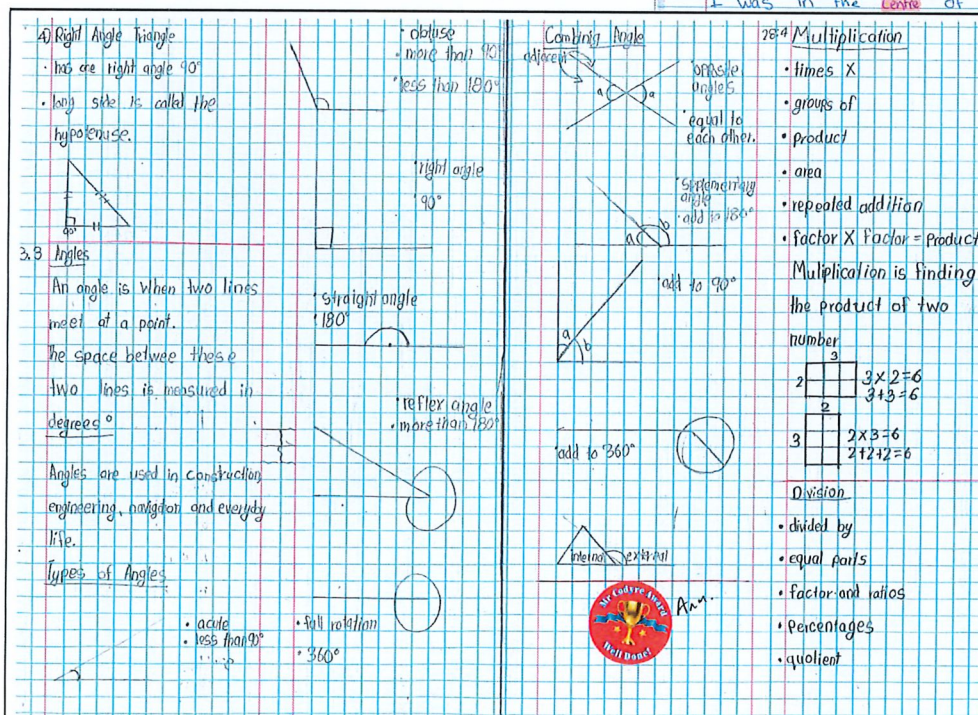 I was in the centre of
4) Right Angle Triangle
• has one right angle 90°
• long side is called the
hypotenuse.
90°
3.3 Angles
An angle is when two lines
meet at a point.
The space betwee these
two lines is measured in
degrees °
Angles are used in construction,
engineering, navigtion and everyday
life.
Types of Angles
• acute
• less than 90°
• obtuse
• more than 90°
less than 180°
• right angle
• 90°
• straight angle
• 180°
• reflex angle
• more than 180°
• full rotation
• 360°
Combinig Angle
adjecent
a a
• opposite
angles
• equal to
each other.
• suplementary
angle
• add to 180°
a b
• add to 90°
a
b
• add to 360°
internal external
Mr Codyre Award
Well Done!
28.4 Multiplication
• times X
• groups of
• product
• area
• repeated addition
• factor X Factor = Product
Muliplication is finding
the product of two
number
3
2 3 × 2 = 6
3 + 3 = 6
2
3 2 × 3 = 6
2 + 2 + 2 = 6
Division
• divided by
• equal parts
• factor and ratios
• percentages
• quotient